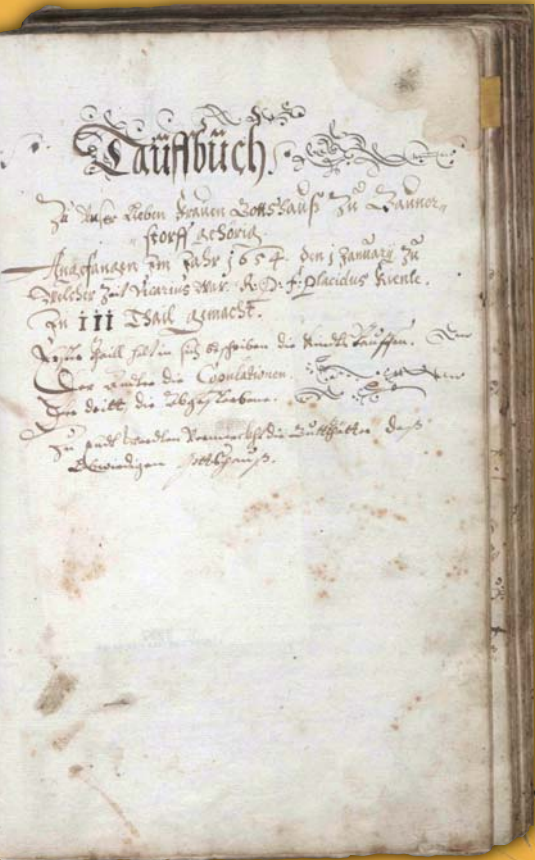 Taüffbüch.
Zu Unser Lieben Frauen Gottshauß Zu Banner„
storff gehörig.
Angefangen Im Jahr 1654. den 1 Januarij Zu
Welcher Zeit Vicarius War. R. D. F. Placidus Kienle.
In III Thail gemacht.
Erste Thaill helt in sich die Kindts Tauffen.
Der ander die Copulationen.
Der dritt, die Abgestorbene.
Zu endt die Gutthätter deß
Gottshauß.